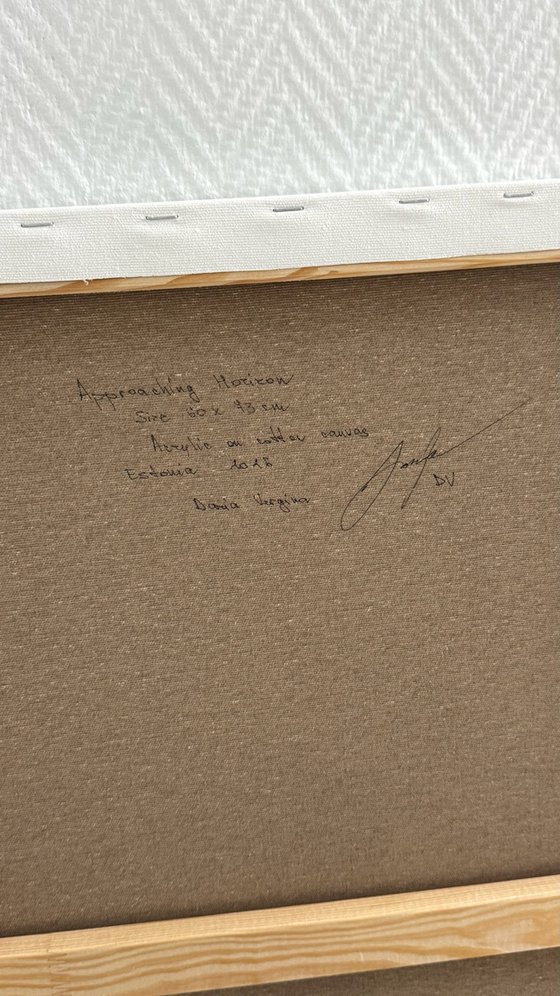 Approaching Horizon
Size 60 x 73 cm
Acrylic on cotton canvas
Estonia
Daria Vergina
DV